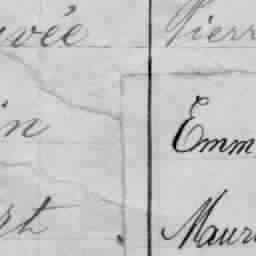 uvée Pierr
in Emm
rt Maur